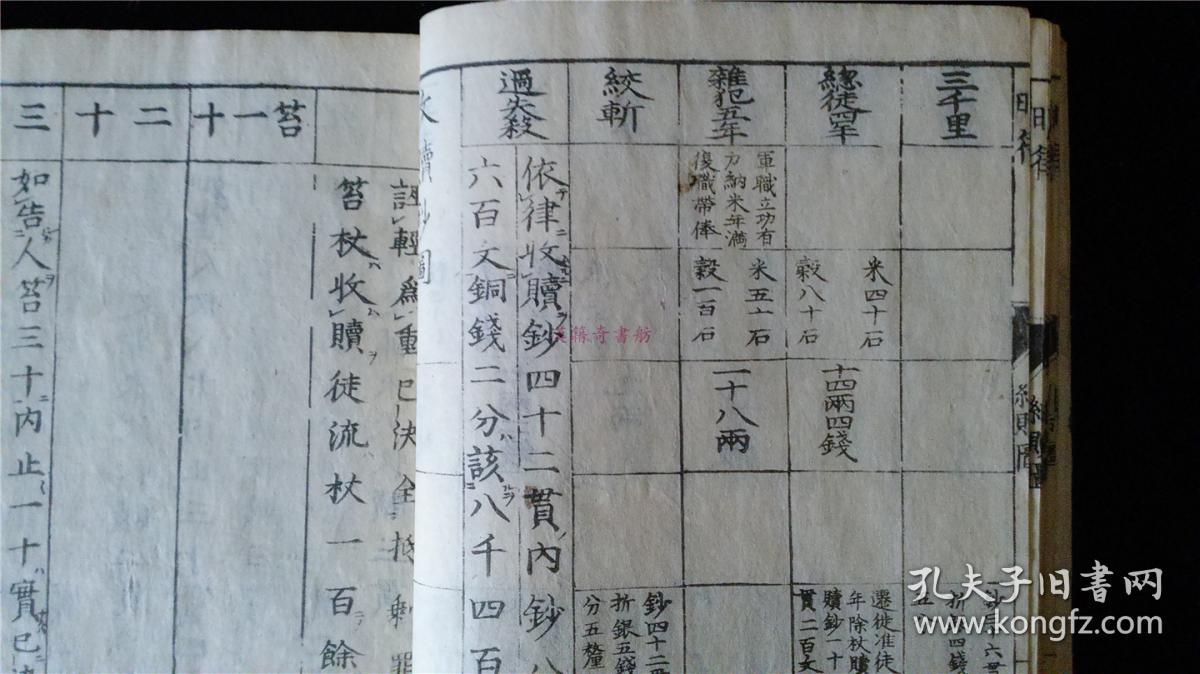 三千里
總徒四年
米四十石
穀八十石
十四兩四錢
遷徙准徒
年除杖贖
贖鈔一十
貫二百文
雜犯五年
軍職立功有
力納米年滿
復職帶俸
米五十石
穀一百石
一十八兩
絞斬
鈔四十二
折銀五錢
分五釐
過失殺
依律收贖鈔四十二貫內鈔八
六百文銅錢二分該八千四百
收贖鈔圖
誣輕爲重已決全抵剩罪
笞杖收贖徒流杖一百餘
笞一十
二十
三
如告人笞三十內止一十實已
納贖圖
孔夫子旧书网
www.kongfz.com